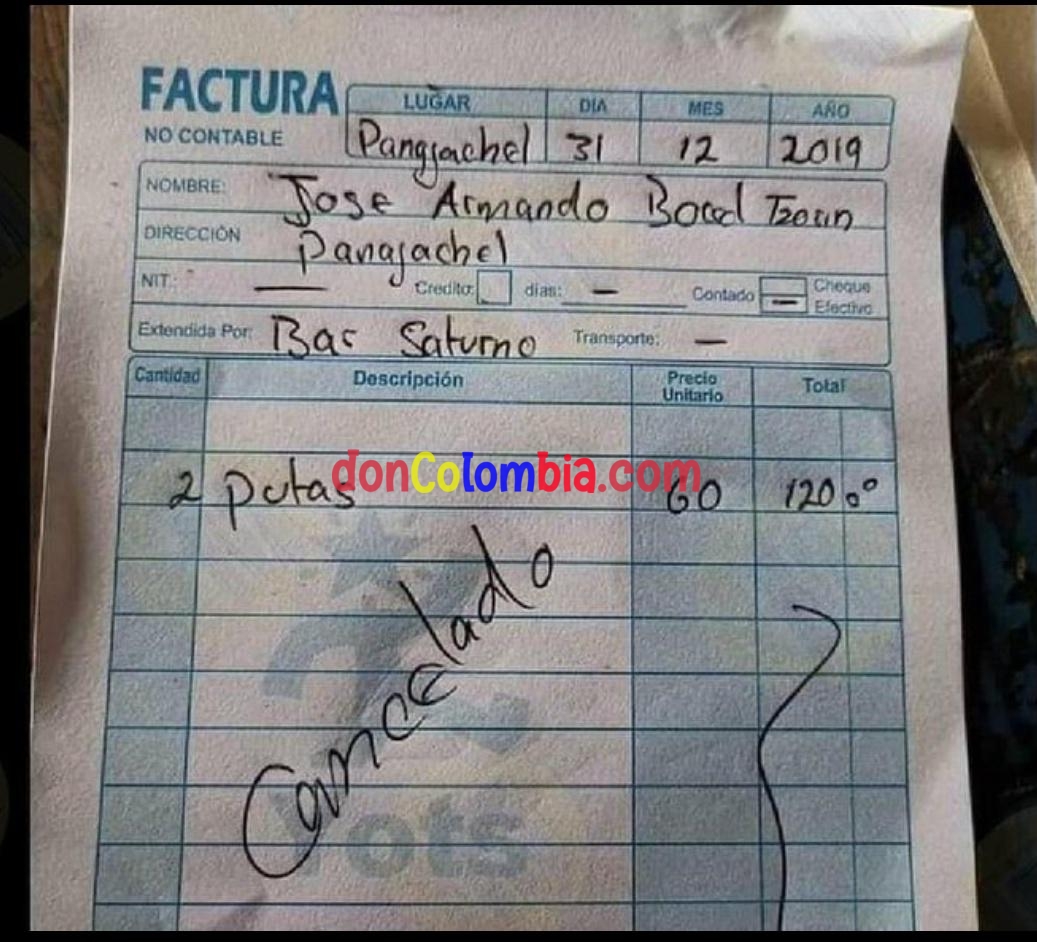 FACTURA
NO CONTABLE
LUGAR DIA MES AÑO
Pangjachel 31 12 2019
NOMBRE: Jose Armando Bocel
DIRECCIÓN Panajachel
NIT.: — Credito: dias: — Contado Cheque
Efectivo —
Extendida Por: Bar Saturno Transporte: —
Cantidad Descripción Precio Unitario Total
donColombia.com
2 putas 60 120.00
Cancelado
ots